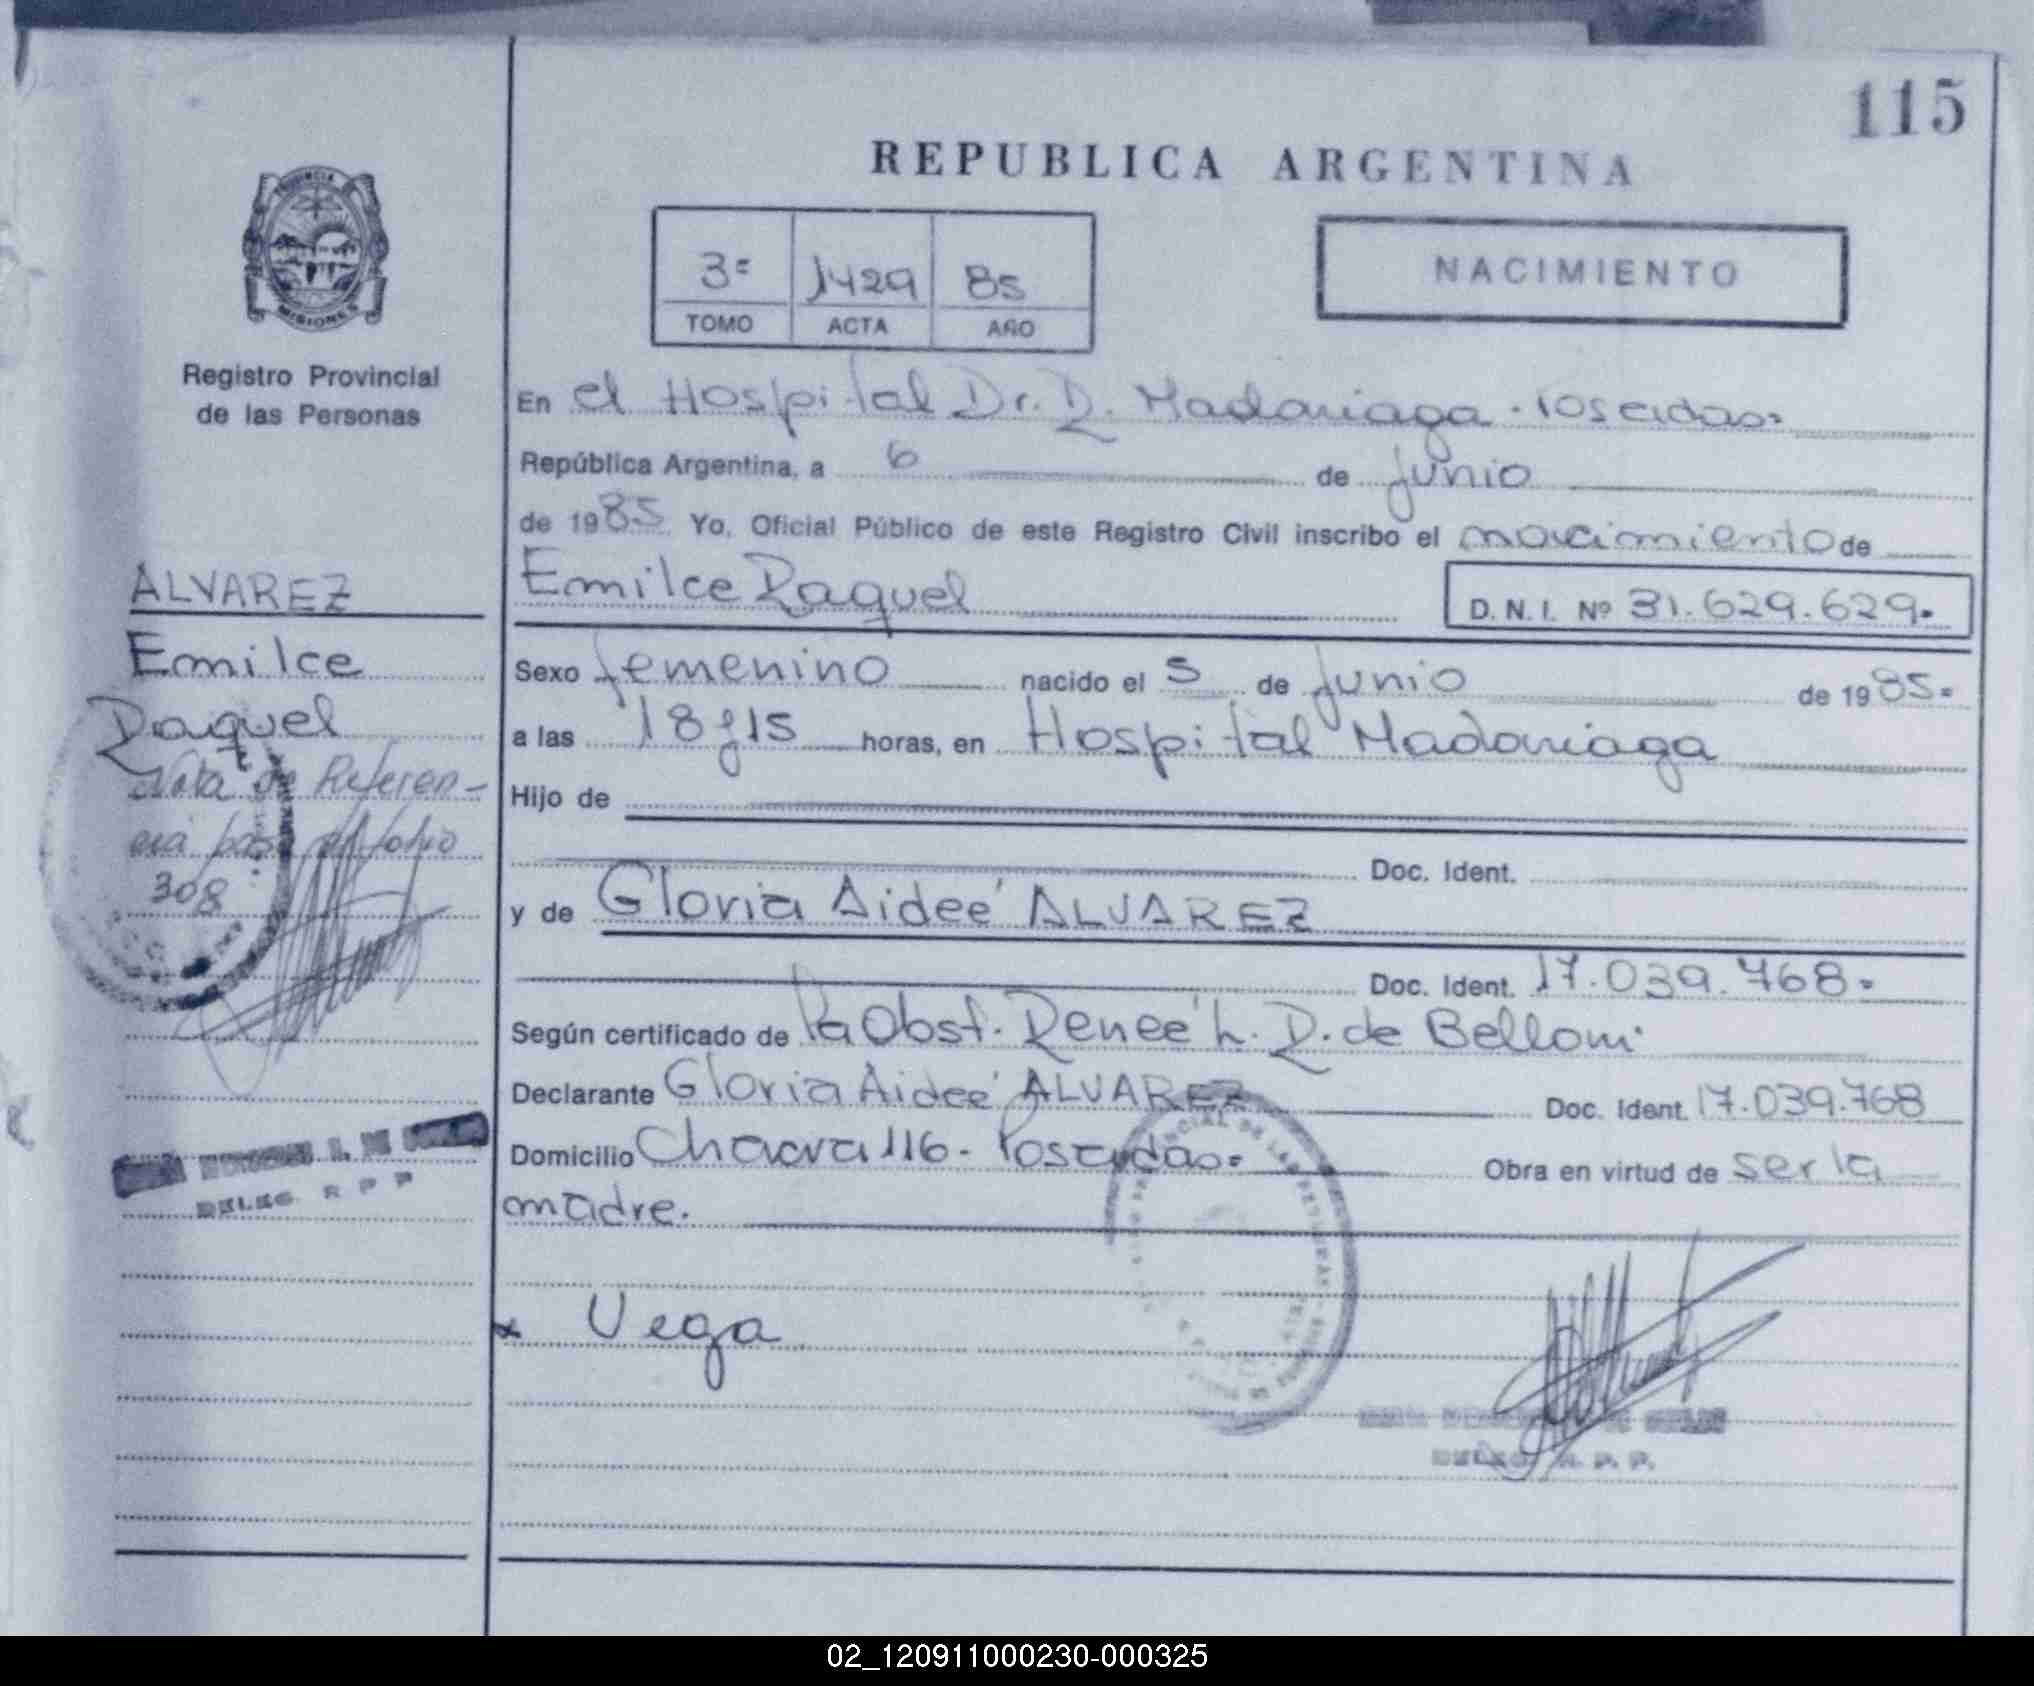 115
REPUBLICA ARGENTINA
PROVINCIA
MISIONES
Registro Provincial
de las Personas
3º 1429 85
TOMO ACTA AÑO
NACIMIENTO
En el Hospital Dr. R. Madariaga - Posadas=
República Argentina, a 6 de junio
de 1985 Yo, Oficial Público de este Registro Civil inscribo el nacimiento de
Emilce Raquel D. N. I. Nº 31.629.629.
ALVAREZ
Emilce
Raquel
Nota de Referen-
cia pasa al folio
308
Sexo femenino nacido el 5 de junio de 1985=
a las 18 y 15 horas, en Hospital Madariaga
Hijo de
Doc. Ident.
y de Gloria Aideé ALVAREZ
Doc. Ident. 17.039.768=
Según certificado de la Obst. Reneé L. R. de Belloni
Declarante Gloria Aideé ALVAREZ Doc. Ident. 17.039.768
Domicilio Chacra 116 - Posadas= Obra en virtud de ser la
madre.
DELEG. R P P
x Vega
DELEG. R. P. P.
02_120911000230-000325